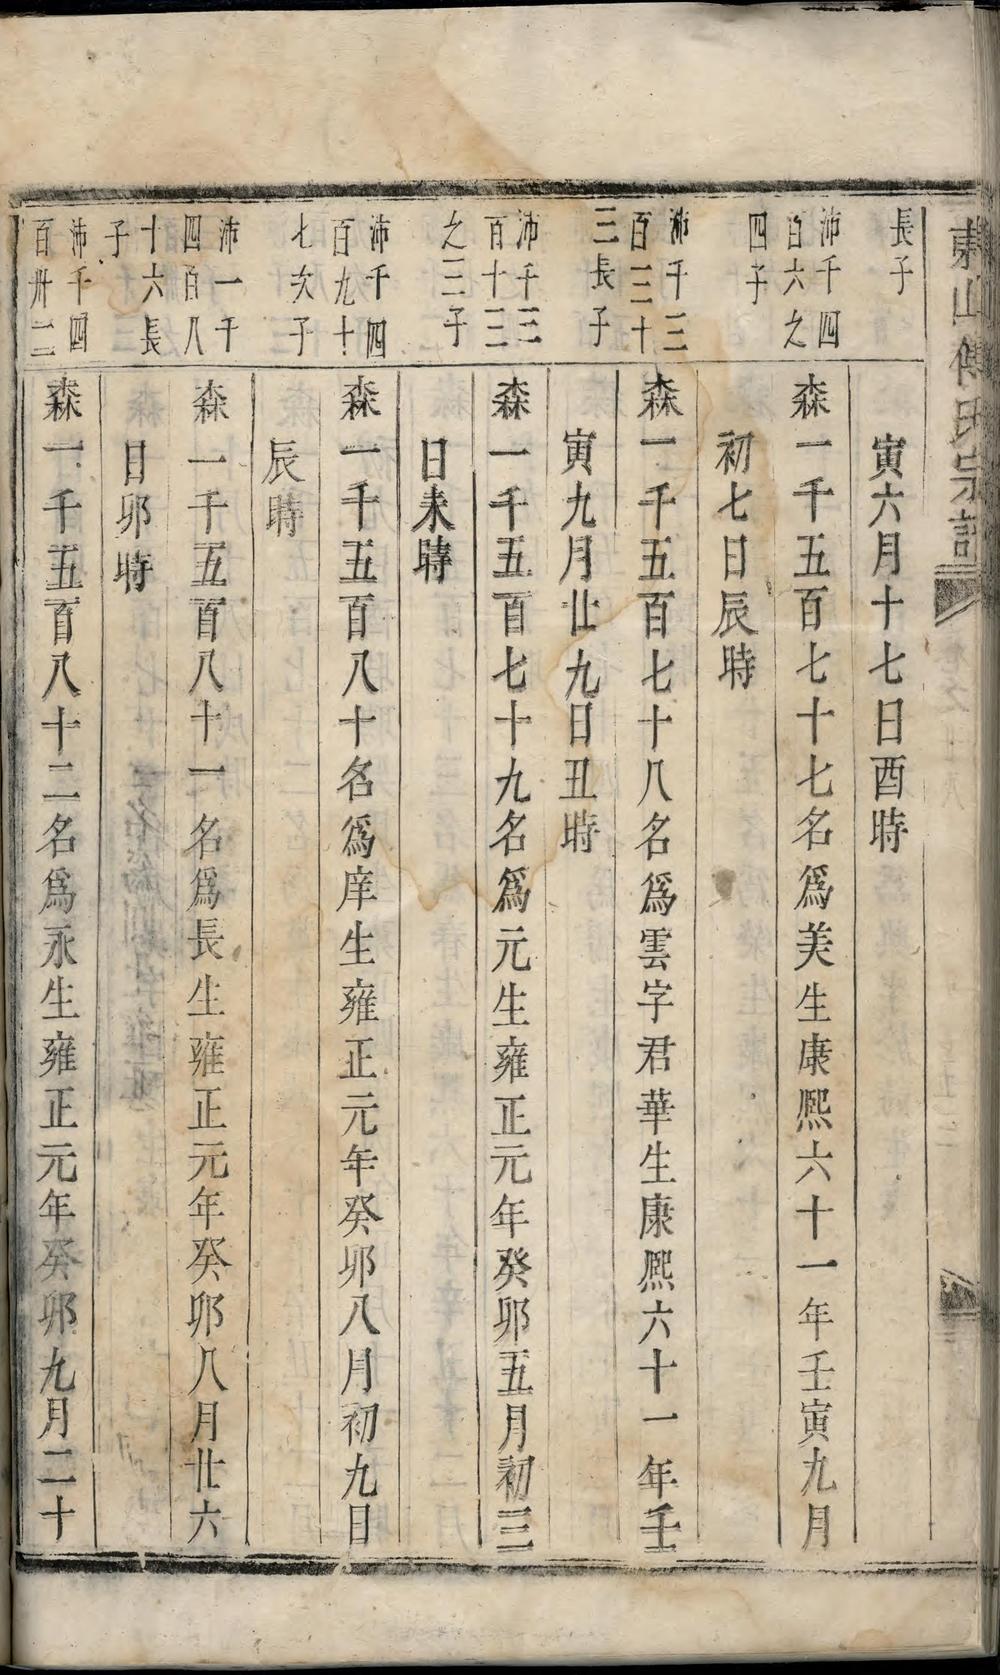 東山傅氏宗譜
長子
寅六月十七日酉時
沛千四
百六之
四子
森一千五百七十七名爲美生康熙六十一年壬寅九月
初七日辰時
沛千三
百三十
三長子
森一千五百七十八名爲雲字君華生康熙六十一年壬
寅九月廿九日丑時
沛千三
百十三
之三子
森一千五百七十九名爲元生雍正元年癸卯五月初三
日未時
沛千四
百九十
七次子
森一千五百八十名爲庠生雍正元年癸卯八月初九日
辰時
沛一千
四百八
十六長
子
森一千五百八十一名爲長生雍正元年癸卯八月廿六
日卯時
沛千四
百卅二
森一千五百八十二名爲永生雍正元年癸卯九月二十